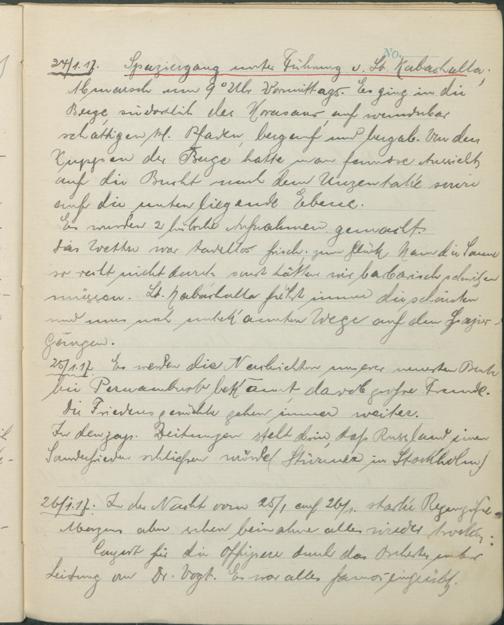 No
24/1.17. Spaziergang unter Führung v. Lt. Kabarhalla.
Abmarsch um 9 Uhr Vormittags. Es ging in die
Berge, südöstlich des auf wunderbar
schattigen kl. Pfaden, bergauf und bergab. Von den
Kuppen der Berge hatte man famose Aussicht
auf die Bucht nach dem sowie
auf die unten liegende Ebene.
Es wurden 2 hübsche Aufnahmen gemacht.
Das Wetter war tadellos frisch, zum Glück kam die Sonne
so recht nicht durch sonst hätten wir barbarisch schwitzen
müssen. Lt. Kabarhalla führt immer die schönsten
und uns noch unbekannten Wege auf den Spazier-
gängen.
25/1.17. Es werden die Nachrichten unserer neuesten Beute
bei Pernambuko bekannt, darob große Freude.
Die Friedensgerüchte gehen immer weiter.
In den jap. Zeitungen steht drin, daß Russland einen
Sonderfrieden schließen würde (Stürmer in Stockholm)
26/1.17. In der Nacht vom 25/1 auf 26/1. starke Regengüsse
Morgens aber schon beinahe alles wieder trocken.
Concert für die Offiziere durch das Orchester unter
Leitung von Dr. Vogt. Es war alles famos eingeübt.